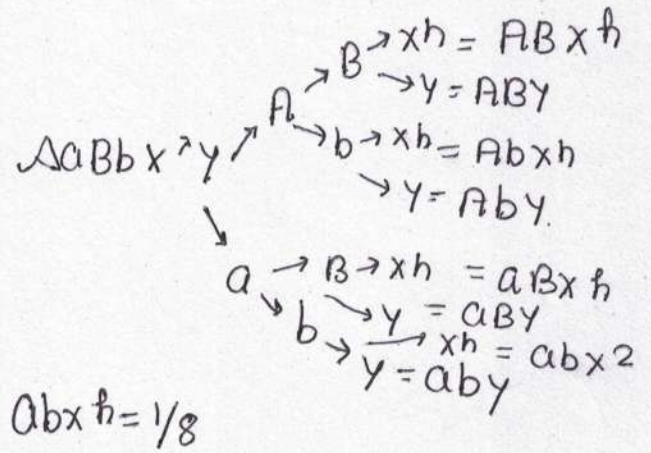 B → xh = ABxh
A → y = ABY
AaBbx y b → xh = Abxh
→ y = Aby.
a → B → xh = aBxh
→ y = aBY
b → xh = abx2
y = aby
abxh = 1/8